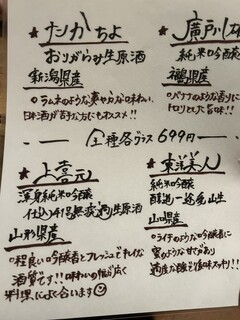 ★たかちよ
おりがらみ生原酒
新潟県産
○ラムネのような爽やかな味わい
日本酒が苦手な方にもおススメ!!
★廣戸川
純米吟醸
福島県産
○バナナのような香りに
全種各グラス 699円
★上喜元
渾身純米吟醸
仕込 無濾過生原酒
山形県産
○程良い吟醸香とフレッシュでキレイな
酒質です!!味わいの幅が広く
料理によく合います☺
★東洋美人
純米吟醸
醇道一途 山生
山口県産
○ライチのような吟醸香に
蜜のような甘みがあり
適度な酸で後味スッキリ!!